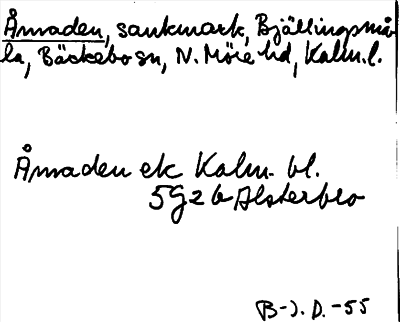 Åmaden, sankmark, Bjällingsmå-
la, Bäckebo sn, N. Möre hd, Kalm. l.
Åmaden ek Kalm. bl.
5G2b Alsterbro
B-J. D. -55